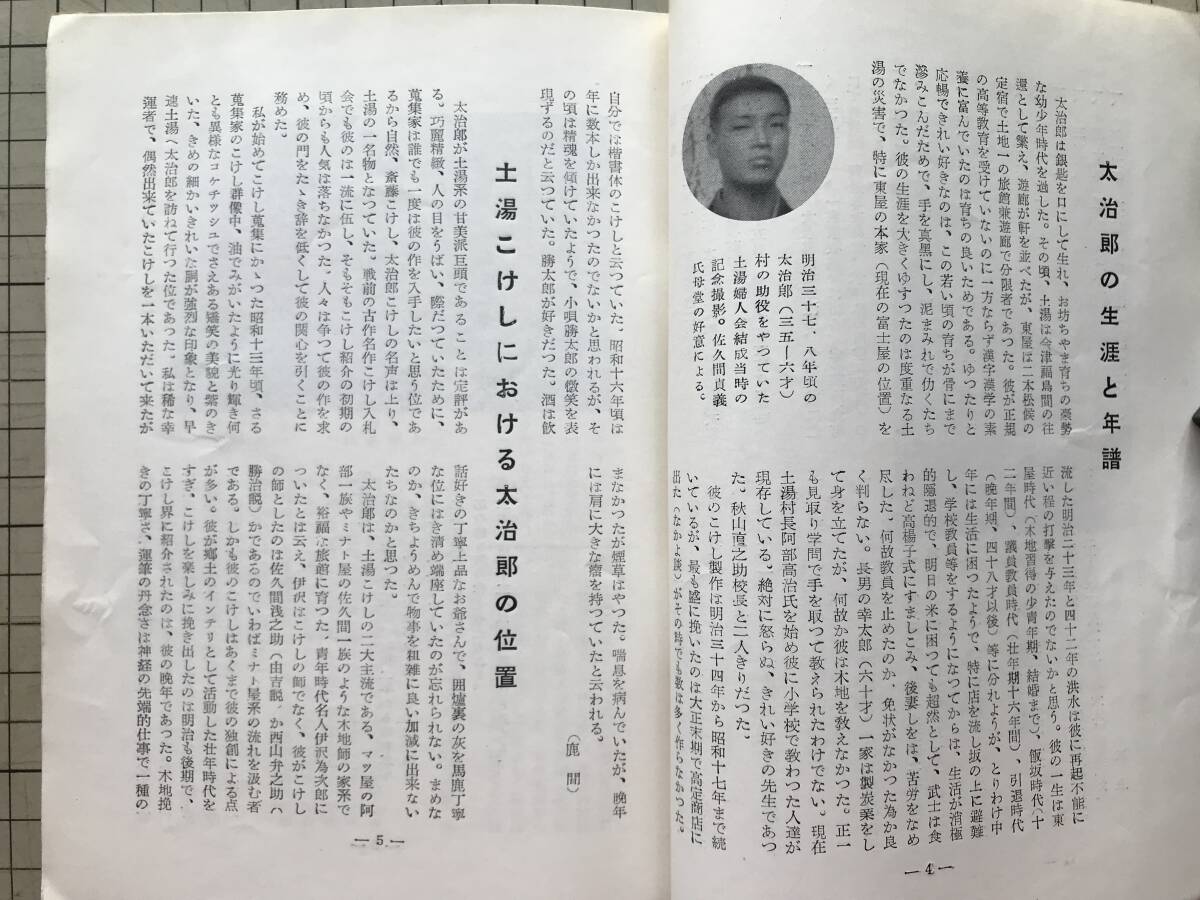 太治郎の生涯と年譜
太治郎は銀匙を口にして生れ、お坊ちやま育ちの豪勢
な幼少年時代を過した。その頃、土湯は会津福島間の往
還として繁え、遊廊が軒を並べたが、東屋は二本松候の
定宿で土地一の旅館兼遊廊で分限者であつた。彼が正規
の高等教育を受けていないのに一方ならず漢字漢学の素
養に富んでいたのは育ちの良いためである。ゆつたりと
応暢できれい好きなのは、この若い頃の育ちが骨にまで
滲みこんだためで、手を真黒にし、泥まみれで仂くたち
でなかつた。彼の生涯を大きくゆすつたのは度重なる土
湯の災害で、特に東屋の本家(現在の富士屋の位置)を
明治三十七、八年頃の
太治郎(三五―六才)
村の助役をやつていた
土湯婦人会結成当時の
記念撮影。佐久間貞義
氏母堂の好意による。
流した明治二十三年と四十二年の洪水は彼に再起不能に
近い程の打撃を与えたのでないかと思う。彼の一生は東
屋時代(木地習得の少青年期、結婚まで)、飯坂時代(十
二年間)、議員教員時代(壮年期十六年間)、引退時代
(晩年期、四十八才以後)等に分れようが、とりわけ中
年には生活に困つたようで、特に店を流し坂の上に避難
し、学校教員等をするようになつてからは、生活が消極
的隠退的で、明日の米に困つても超然として、武士は食
わねど高楊子式にすましこみ、後妻しをは、苦労をなめ
尽した。何故教員を止めたのか、免状がなかつた為か良
く判らない。長男の幸太郎(六十才)一家は製炭業をし
て身を立てたが、何故か彼は木地を教えなかつた。正一
も見取り学問で手を取つて教えられたわけでない。現在
土湯村長阿部高治氏を始め彼に小学校で教わつた人達が
現存している。絶対に怒らぬ、きれい好きの先生であつ
た。秋山直之助校長と二人きりだつた。
彼のこけし製作は明治三十四年から昭和十七年まで続
いているが、最も盛に挽いたのは大正末期で高定商店に
出た(なかよ談)がその時でも数は多く作らなかつた。
―4―
自分では楷書体のこけしと云つていた。昭和十六年頃は
年に数本しか出来なかつたのでないかと思われるが、そ
の頃は精魂を傾けていたようで、小唄勝太郎の微笑を表
現ずるのだと云つていた。勝太郎が好きだつた。酒は飲
まなかつたが煙草はやつた。喘息を病んでいたが、晩年
には肩に大きな瘤を持つていたと云われる。
(鹿間)
土湯こけしにおける太治郎の位置
太治郎が土湯系の甘美派巨頭であることは定評があ
る。巧麗精緻、人の目をうばい、際だつていたために、
蒐集家は誰でも一度は彼の作を入手したいと思う位であ
るから自然、斎藤こけし、太治郎こけしの名声は上り、
土湯の一名物となつていた。戦前の古作名作こけし入札
会でも彼のは一流に伍し、そもそもこけし紹介の初期の
頃からも人気は落ちなかつた。人々は争つて彼の作を求
め、彼の門をたゝき辞を低くして彼の関心を引くことに
務めた。
私が始めてこけし蒐集にかゝつた昭和十三年頃、さる
蒐集家のこけし群像中、油でみがいたように光り輝き何
とも異様なコケチッシュでさえある嬌笑の美貌と紫のき
いた、きめの細かいきれいな胴が強烈な印象となり、早
速土湯へ太治郎を訪ねて行つた位であつた。私は稀な幸
運者で、偶然出来ていたこけしを一本いただいて来たが
話好きの丁寧上品なお爺さんで、囲爐裏の灰を馬鹿丁寧
な位にはき清め端座していたのが忘れられない。まめな
のか、きちようめんで物事を粗雑に良い加減に出来ない
たちなのかと思つた。
太治郎は、土湯こけしの二大主流である、マツ屋の阿
部一族やミナト屋の佐久間一族のような木地師の家系で
なく、裕福な旅館に育つた。青年時代名人伊沢為次郎に
ついたとは云え、伊沢はこけしの師でなく、彼がこけし
の師としたのは佐久間浅之助(由吉説)か西山弁之助(
勝治説)かであるのでいわばミナト屋系の流れを汲む者
である。しかも彼のこけしはあくまで彼の独創による点
が多い。彼が郷土のインテリとして活動した壮年時代を
すぎ、こけしを楽しみに挽き出したのは明治も後期で、
こけし界に紹介されたのは、彼の晩年であつた。木地挽
きの丁寧さ、運筆の丹念さは神経の先端的仕事で一種の
―5―